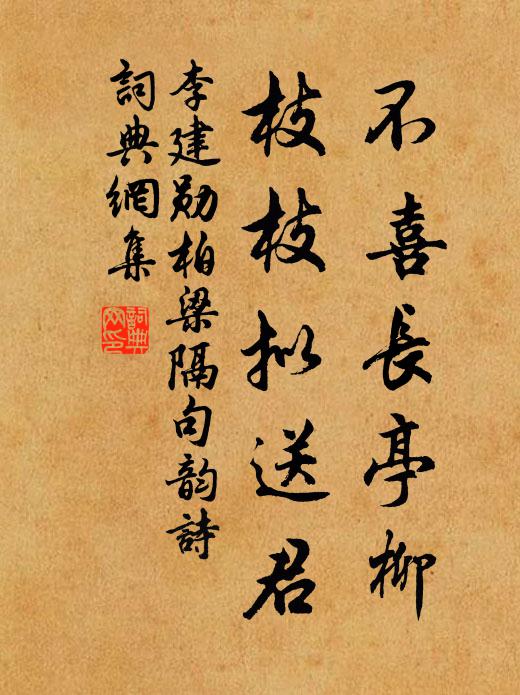 不喜長亭柳
枝枝拟送君
李建勋柏梁隔句韵詩
詞典網集
詞典
网印